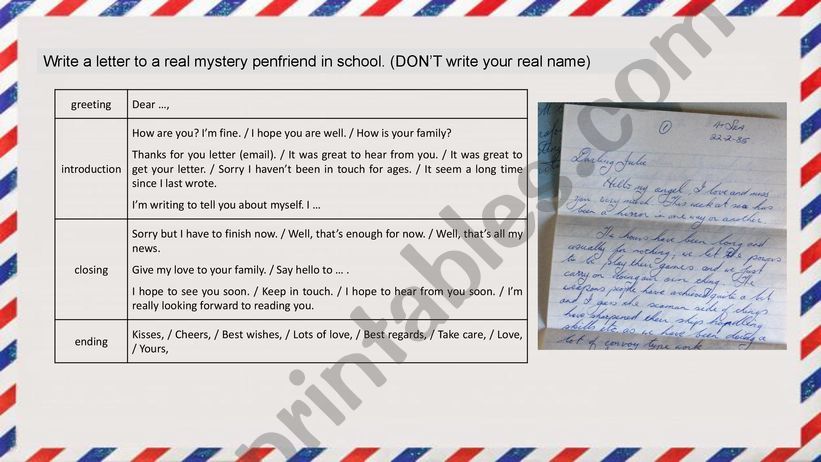 Write a letter to a real mystery penfriend in school. (DON'T write your real name)
greeting
Dear …,
introduction
How are you? I'm fine. / I hope you are well. / How is your family?
Thanks for you letter (email). / It was great to hear from you. / It was great to
get your letter. / Sorry I haven't been in touch for ages. / It seem a long time
since I last wrote.
I'm writing to tell you about myself. I …
closing
Sorry but I have to finish now. / Well, that's enough for now. / Well, that's all my
news.
Give my love to your family. / Say hello to … .
I hope to see you soon. / Keep in touch. / I hope to hear from you soon. / I'm
really looking forward to reading you.
ending
Kisses, / Cheers, / Best wishes, / Lots of love, / Best regards, / Take care, / Love,
/ Yours,
1
At Sea
22-2-85
Darling Julie
Hello my angel, I love and miss
you very much. This week at sea has
been a horror in one way or another.
The hours have been long and
usually for nothing, we let the powers
to be play their games and we just
carry on doing our own thing. The
weapons people have achieved quite a bit
and I guess the seaman side of things
have sharpened their ships handling
skills etc as we have been doing a
lot of convoy type work
printables.com